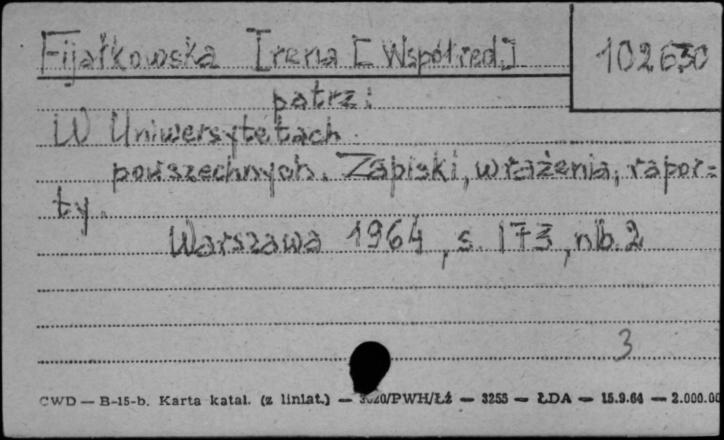 Fijałkowska Irena [Współred.]
102630
patrz:
W Uniwersytetach
powszechnych. Zapiski, wrażenia, rapor=
ty.
Warszawa 1964, s. 173, nlb. 2
3
CWD — B-15-b. Karta katal. (z liniat.) — /PWH/Łź — 3255 — ŁDA — 15.9.64 — 2.000.00